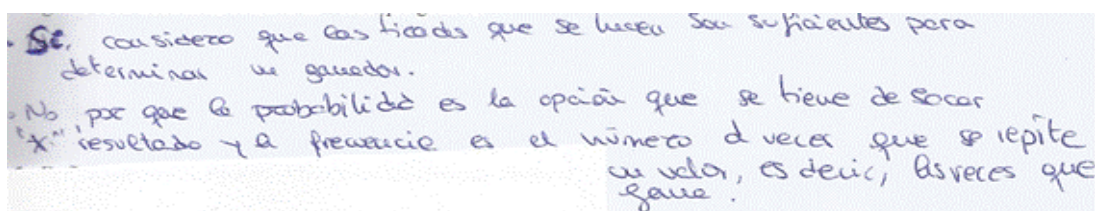 . Si. considero que las ticadas que se hacen son suficientes para
determinar un ganador.
. No, por que la probabilidad es la opción que se tiene de sacar
"x" resultado y la frecuencia es el número d veces que se repite
un valor, es decir, las veces que
gane.